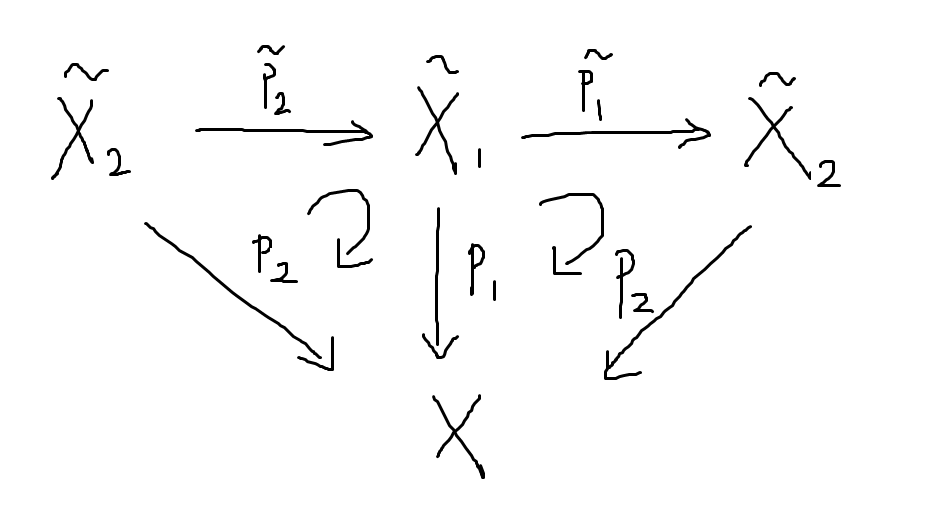 X̃₂ p̃₂ X̃₁ p̃₁ X̃₂
p₂ p₁ p₂
X